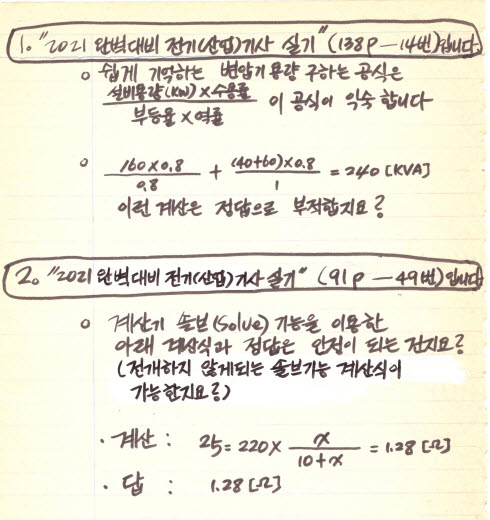 1. "2021 완벽대비 전기(산업)기사 실기" (138P - 14번)입니다
o 쉽게 기억하는 변압기 용량 구하는 공식은
설비용량(KW) × 수용률 / 부등률 × 역률 이 공식이 익숙합니다
o 160×0.8 / 0.8 + (40+60)×0.8 / 1 = 240 [KVA]
이런 계산은 정답으로 부적합지요?
2. "2021 완벽대비 전기(산업)기사 실기" (91P - 49번)입니다
o 계산기 솔브(Solve) 기능을 이용한
아래 계산식과 정답은 인정이 되는 건지요?
(전개하지 않게되는 솔브가능 계산식이
가능한지요?)
· 계산 : 25 = 220 × x / 10+x = 1.28 [Ω]
· 답 : 1.28 [Ω]